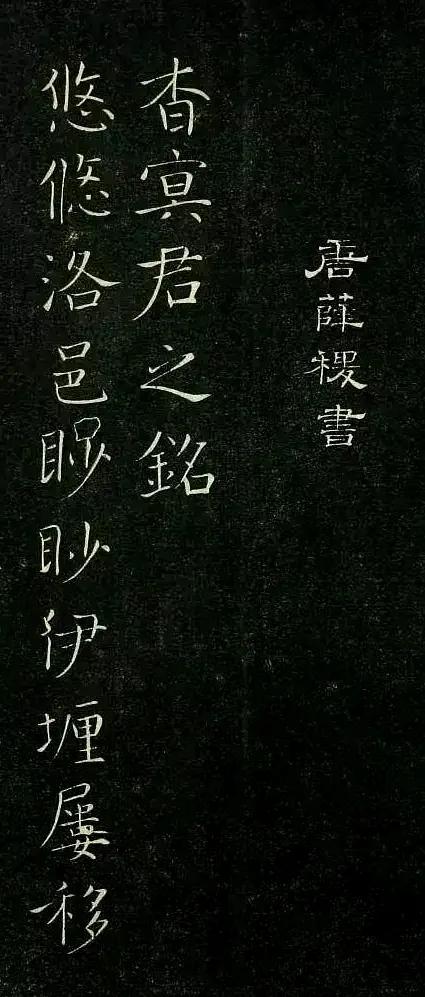 唐薛稷書
杳冥君之銘
悠悠洛邑眇眇伊壥屢移